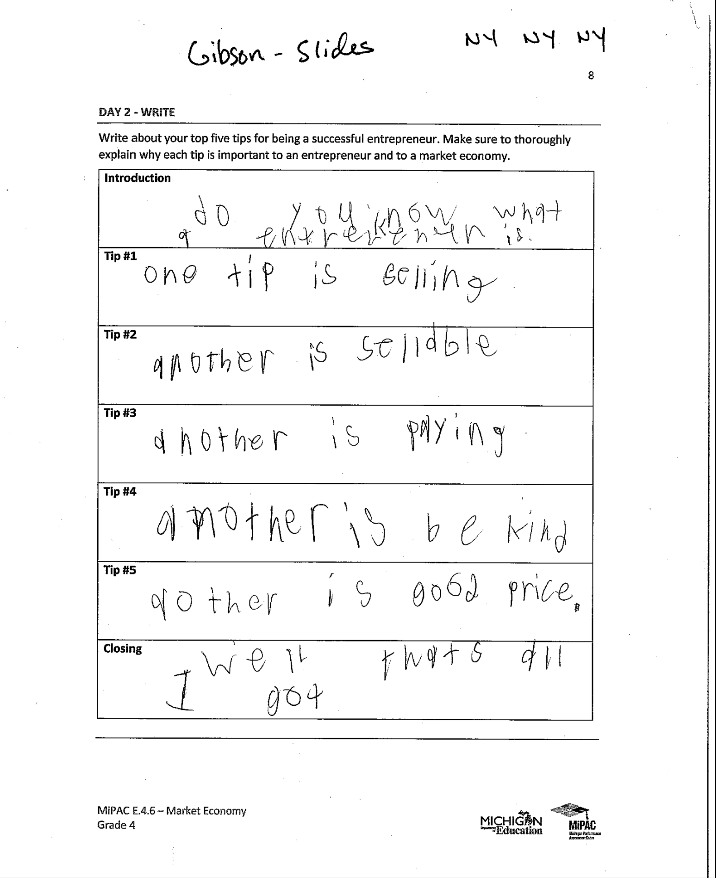 Gibson - Slides NY NY NY
8
DAY 2 - WRITE
Write about your top five tips for being a successful entrepreneur. Make sure to thoroughly
explain why each tip is important to an entrepreneur and to a market economy.
Introduction
do you know what
a entrerkenen is.
Tip #1
one tip is selling.
Tip #2
another is sellable
Tip #3
another is paying
Tip #4
another is be kind
Tip #5
aother is good price.
Closing
well thats all
I got
MiPAC E.4.6 – Market Economy
Grade 4
MICHIGAN
Education
MiPAC